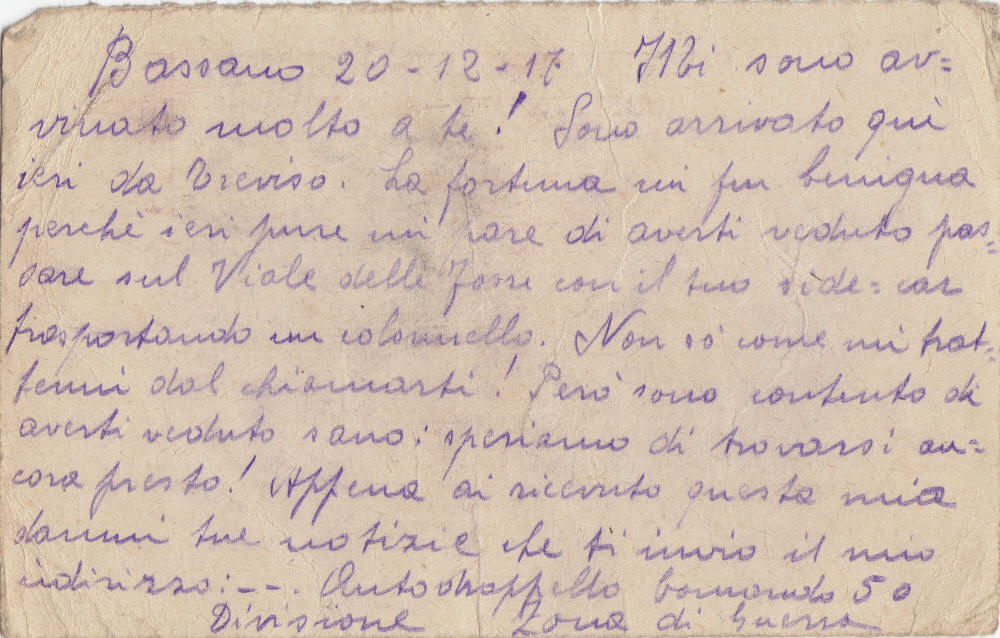 Bassano 20-12-17 Mi sono av=
vinato molto a te! Sono arrivato quì
ieri da Treviso. La fortuna mi fu benigna
perchè ieri pure mi pare di averti veduto pas=
sare sul Viale delle Fosse con il tuo side=car
trasportando un colonnello. Non sò come mi trat=
tenni dal chiamarti! Però sono contento di
averti veduto sano: speriamo di trovarsi an=
cora presto! Appena ai ricevuto questa mia
dammi tue notizie che ti invio il mio
indirizzo: --. Autodrappello Comando 50
Divisione Zona di Guerra